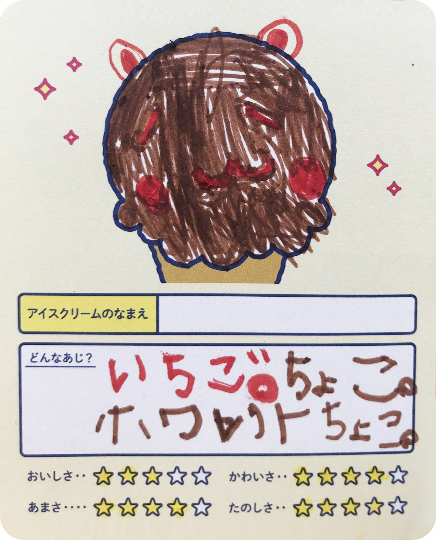 アイスクリームのなまえ
どんなあじ?
いちご。ちょこ。
ホワイトちょこ。
おいしさ‥ かわいさ‥
あまさ‥‥ たのしさ‥